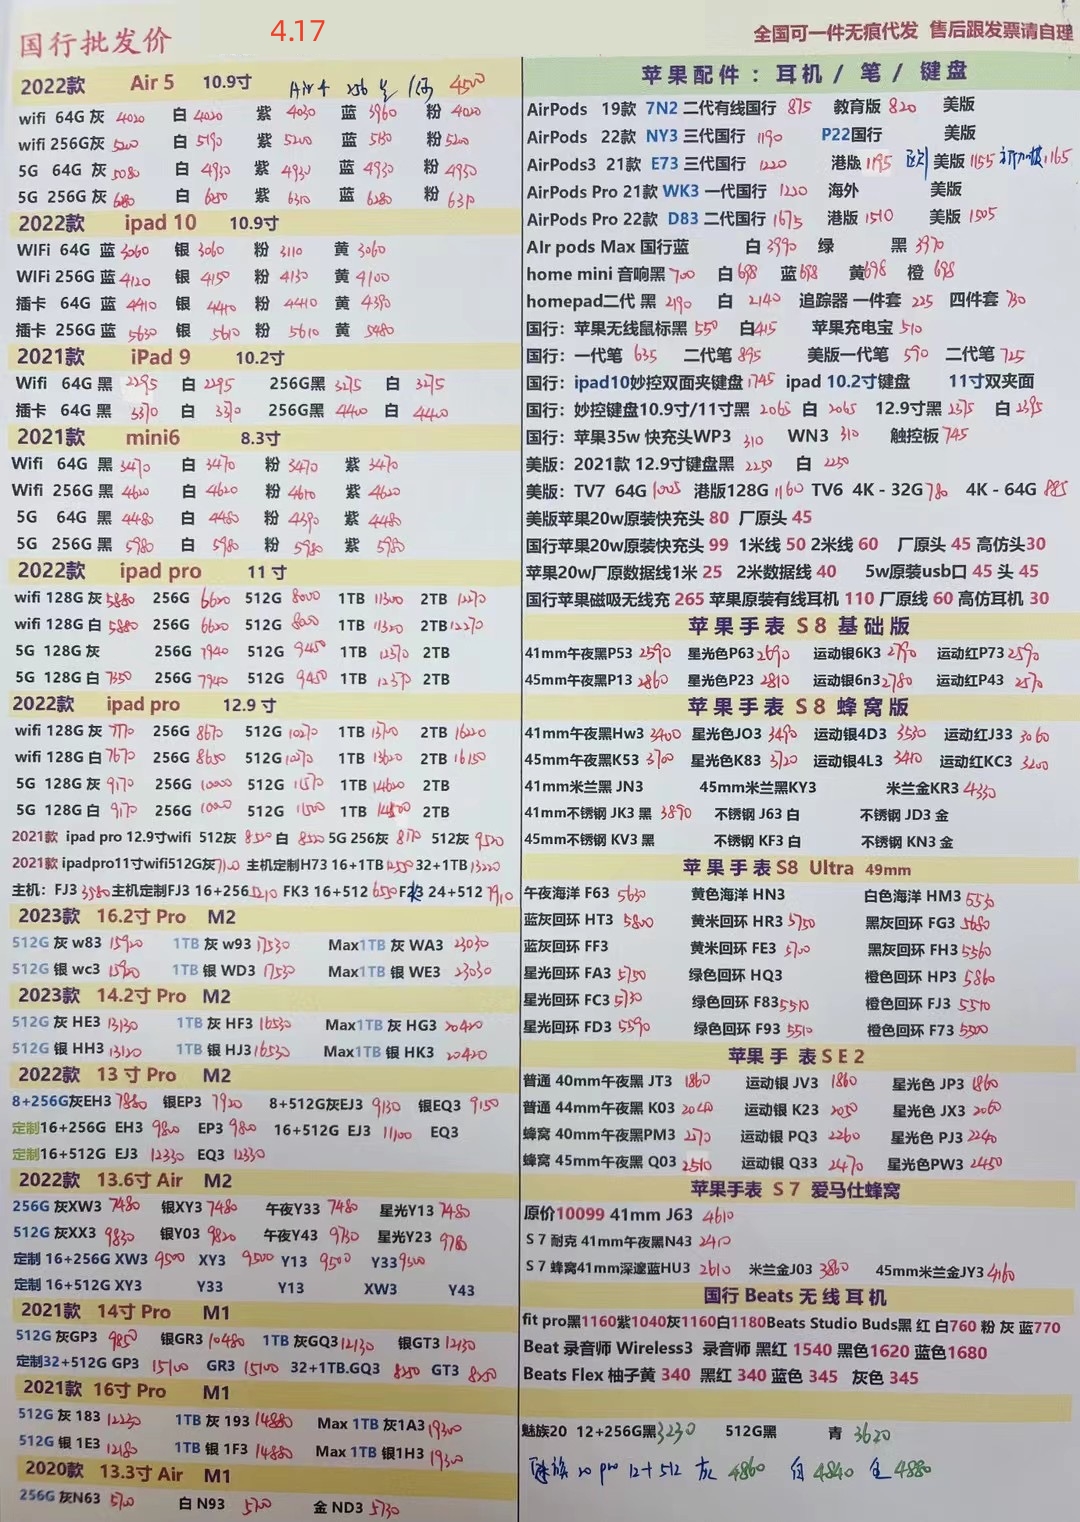 国行批发价
4.17
全国可一件无痕代发 售后跟发票请自理
2022款 Air 5 10.9寸 Air 4 256 4500
wifi 64G 灰 4020 白 4020 紫 4030 蓝 3960 粉 4020
wifi 256G灰 5200 白 5190 紫 5200 蓝 5130 粉 5200
5G 64G 灰 5080 白 4930 紫 4930 蓝 4930 粉 4930
5G 256G灰 白 紫 6310 蓝 6280 粉 6310
2022款 ipad 10 10.9寸
WIFi 64G 蓝 3060 银 3060 粉 3110 黄 3060
WIFi 256G 蓝 4120 银 4150 粉 4130 黄 4100
插卡 64G 蓝 4410 银 4440 粉 4410 黄 4390
插卡 256G 蓝 5630 银 5610 粉 5610 黄 5480
2021款 iPad 9 10.2寸
Wifi 64G 黑 2295 白 2295 256G黑 3275 白 3275
插卡 64G 黑 3370 白 3370 256G黑 4400 白 4440
2021款 mini6 8.3寸
Wifi 64G 黑 3470 白 3470 粉 3470 紫 3470
Wifi 256G 黑 4620 白 4620 粉 4610 紫 4620
5G 64G 黑 4480 白 4480 粉 4390 紫 4480
5G 256G 黑 5980 白 5980 粉 5980 紫 5980
2022款 ipad pro 11 寸
wifi 128G 灰 5880 256G 6620 512G 8000 1TB 11300 2TB 12270
wifi 128G 白 5880 256G 6620 512G 8020 1TB 11320 2TB 12270
5G 128G 灰 256G 7940 512G 9450 1TB 12570 2TB
5G 128G 白 7350 256G 7940 512G 9450 1TB 12570 2TB
2022款 ipad pro 12.9 寸
wifi 128G 灰 7770 256G 8670 512G 10270 1TB 13700 2TB 16220
wifi 128G 白 7670 256G 8650 512G 10270 1TB 13620 2TB 16150
5G 128G 灰 9170 256G 10000 512G 11570 1TB 14620 2TB
5G 128G 白 9170 256G 10000 512G 11500 1TB 14500 2TB
2021款 ipad pro 12.9寸wifi 512灰 8520 白 8520 5G 256灰 8170 512灰 9520
2021款 ipadpro11寸wifi512G灰 7100 主机定制H73 16+1TB 32+1TB 13220
主机：FJ3 3580 主机定制FJ3 16+256 5210 FK3 16+512 6350 24+512 7910
2023款 16.2寸 Pro M2
512G 灰 w83 15920 1TB 灰 w93 17530 Max1TB 灰 WA3 23030
512G 银 wc3 15920 1TB 银 WD3 17530 Max1TB 银 WE3 23030
2023款 14.2寸 Pro M2
512G 灰 HE3 13130 1TB 灰 HF3 16530 Max1TB 灰 HG3 20420
512G 银 HH3 13120 1TB 银 HJ3 16530 Max1TB 银 HK3 20420
2022款 13 寸 Pro M2
8+256G灰EH3 7880 银EP3 7920 8+512G灰EJ3 9130 银EQ3 9150
定制16+256G EH3 9800 EP3 9800 16+512G EJ3 11100 EQ3
定制16+512G EJ3 12330 EQ3 12330
2022款 13.6寸 Air M2
256G 灰XW3 7480 银XY3 7480 午夜Y33 7480 星光Y13 7480
512G 灰XX3 9830 银Y03 9820 午夜Y43 9730 星光Y23 9780
定制 16+256G XW3 9500 XY3 9500 Y13 9500 Y33 9500
定制 16+512G XY3 Y33 Y13 XW3 Y43
2021款 14寸 Pro M1
512G 灰GP3 9850 银GR3 10480 1TB 灰GQ3 12130 银GT3 12130
定制32+512G GP3 15100 GR3 15100 32+1TB.GQ3 GT3
2021款 16寸 Pro M1
512G 灰 183 12230 1TB 灰 193 14880 Max 1TB 灰1A3 19300
512G 银 1E3 12180 1TB 银 1F3 14880 Max 1TB 银1H3 19300
2020款 13.3寸 Air M1
256G 灰N63 5700 白 N93 5700 金 ND3 5730
苹果配件：耳机 / 笔 / 键盘
AirPods 19款 7N2 二代有线国行 875 教育版 820 美版
AirPods 22款 NY3 三代国行 1190 P22国行 美版
AirPods3 21款 E73 三代国行 1220 港版 1195 美版 1155 新加坡 1165
AirPods Pro 21款 WK3 一代国行 1220 海外 美版
AirPods Pro 22款 D83 二代国行 1675 港版 1510 美版 1505
AIr pods Max 国行蓝 白 3990 绿 黑 3970
home mini 音响黑 700 白 698 蓝 698 黄 698 橙 698
homepad二代 黑 2190 白 2140 追踪器 一件套 225 四件套 730
国行：苹果无线鼠标黑 550 白 415 苹果充电宝 510
国行：一代笔 635 二代笔 895 美版一代笔 590 二代笔 725
国行：ipad10妙控双面夹键盘 1745 ipad 10.2寸键盘 11寸双夹面
国行：妙控键盘10.9寸/11寸黑 2065 白 2065 12.9寸黑 2375 白 2395
国行：苹果35w 快充头WP3 310 WN3 310 触控板 745
美版：2021款 12.9寸键盘黑 2250 白 2250
美版：TV7 64G 1005 港版128G 1160 TV6 4K - 32G 780 4K - 64G 885
美版苹果20w原装快充头 80 厂原头 45
国行苹果20w原装快充头 99 1米线 50 2米线 60 厂原头 45 高仿头30
苹果20w厂原数据线1米 25 2米数据线 40 5w原装usb口 45 头 45
国行苹果磁吸无线充 265 苹果原装有线耳机 110 厂原线 60 高仿耳机 30
苹果手表 S 8 基础版
41mm午夜黑P53 2590 星光色P63 2690 运动银6K3 2790 运动红P73 2590
45mm午夜黑P13 2860 星光色P23 2810 运动银6n3 2780 运动红P43 2570
苹果手表 S 8 蜂窝版
41mm午夜黑Hw3 3400 星光色JO3 3490 运动银4D3 3530 运动红J33 3060
45mm午夜黑K53 3700 星光色K83 3720 运动银4L3 3410 运动红KC3 3200
41mm米兰黑 JN3 45mm米兰黑KY3 米兰金KR3 4330
41mm不锈钢 JK3 黑 3890 不锈钢 J63 白 不锈钢 JD3 金
45mm不锈钢 KV3 黑 不锈钢 KF3 白 不锈钢 KN3 金
苹果手表S8 Ultra 49mm
午夜海洋 F63 5630 黄色海洋 HN3 白色海洋 HM3 5530
蓝灰回环 HT3 5800 黄米回环 HR3 5750 黑灰回环 FG3 5680
蓝灰回环 FF3 黄米回环 FE3 5700 黑灰回环 FH3 5560
星光回环 FA3 5750 绿色回环 HQ3 橙色回环 HP3 5860
星光回环 FC3 5730 绿色回环 F83 5510 橙色回环 FJ3 5570
星光回环 FD3 5590 绿色回环 F93 5510 橙色回环 F73 5500
苹果手表SE2
普通 40mm午夜黑 JT3 1860 运动银 JV3 1860 星光色 JP3 1860
普通 44mm午夜黑 K03 2040 运动银 K23 2050 星光色 JX3 2060
蜂窝 40mm午夜黑PM3 2270 运动银 PQ3 2260 星光色 PJ3 2240
蜂窝 45mm午夜黑 Q03 2510 运动银 Q33 2470 星光色PW3 2450
苹果手表 S 7 爱马仕蜂窝
原价10099 41mm J63 4610
S 7 耐克 41mm午夜黑N43 2410
S 7 蜂窝41mm深邃蓝HU3 2610 米兰金J03 3860 45mm米兰金JY3 4160
国行 Beats 无线耳机
fit pro黑1160紫1040灰1160白1180Beats Studio Buds黑 红 白760 粉 灰 蓝770
Beat 录音师 Wireless3 录音师 黑红 1540 黑色1620 蓝色1680
Beats Flex 柚子黄 340 黑红 340 蓝色 345 灰色 345
魅族20 12+256G黑 3230 512G黑 青 3620
魅族 20 pro 12+512 灰 4860 白 4840 金 4880